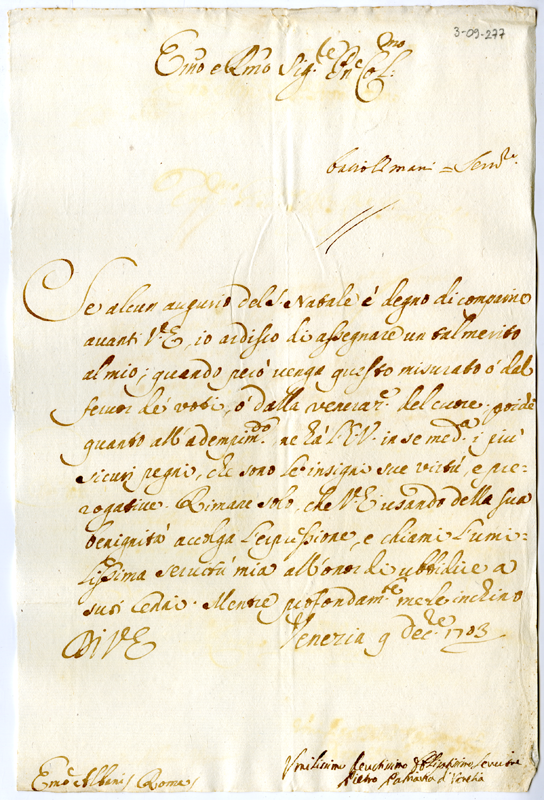 3-09-277
Em̃o e R̃mo Sig.re P̃ne Col.mo
bacio le mani =
Se alcun augurio del S. Natale è degno di comparire
avanti V.E, io ardisco di assegnare un tal merito
al mio; quando però venga questo misurato ò dal
fervor de' voti, ò dalla veneraz.e del cuore; poiche
quanto all'adempim.to ne hà l'E.V. in se med.a i più
sicuri pegni, che sono le insigni sue virtù, e pre-
rogative. Rimane solo, che V.E usando della sua
benignità acolga l'espressione, e chiami l'umi-
lissima servitù mia all'onor di ubbidire a
suoi cenni. Mentre profondam.te mele inchino
Di V.E Venezia 9 dec.bre 1703
Em.o Albani Roma
Umilissimo devotissimo obligatissimo servitore
Pietro Patriarca di Venetia